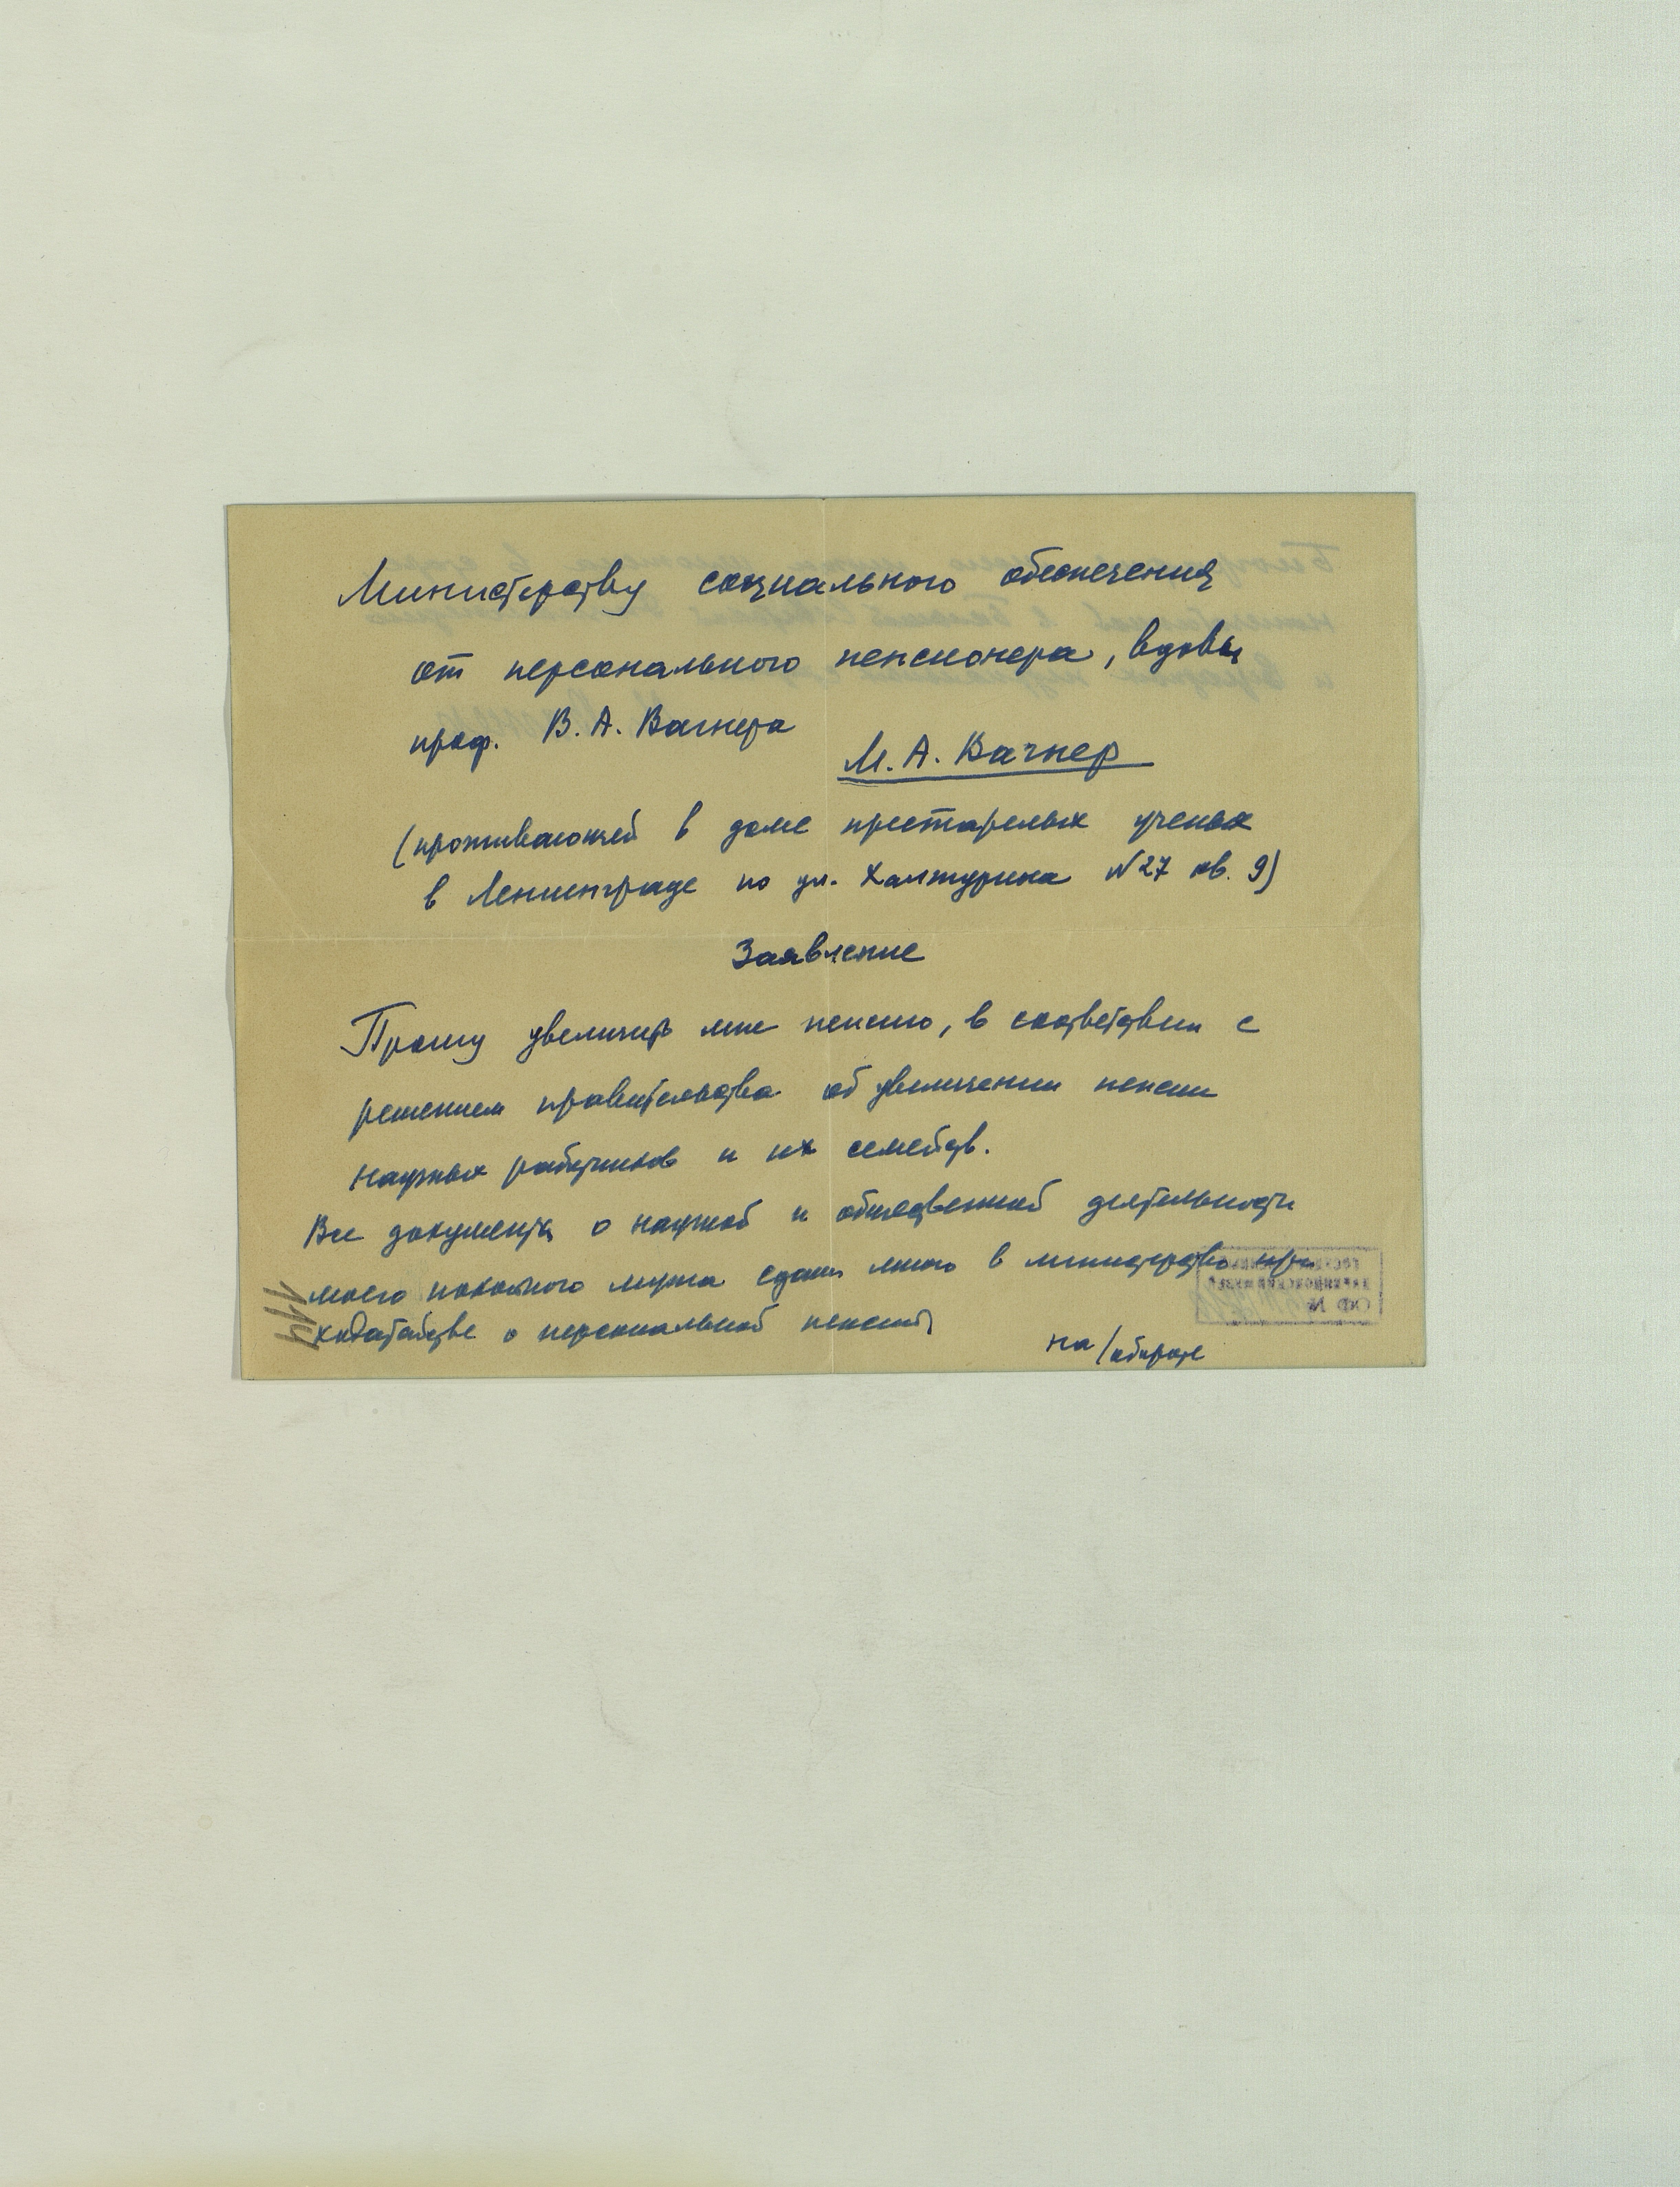 Министерству социального обеспечения
от персонального пенсионера, вдовы
проф. В. А. Вагнера
М. А. Вагнер
(проживающей в доме престарелых ученых
в Ленинграде по ул. Халтурина №27 кв. 9)
Заявление
Прошу увеличить мне пенсию, в соответствии с
решением правительства об увеличении пенсии
научных работников и их семейств.
Все документы о научной и общественной деятельности
моего покойного мужа сданы мною в министерство при
ходатайстве о персональной пенсии
на/обороте
114